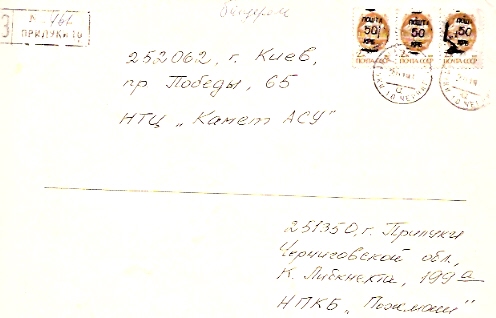 З
№ 166
ПРИЛУКИ 10
ПОШТА
50
КРБ
ПОШТА
50
КРБ
ПОШТА
50
КРБ
ПОЧТА СССР
ПОЧТА СССР
252062, г. Киев,
пр Победы, 65
НТЦ „Камет АСУ"
251350, г. Прилуки
Черниговской обл,
К. Либкнехта, 199а
НПКБ „Пожмаш"